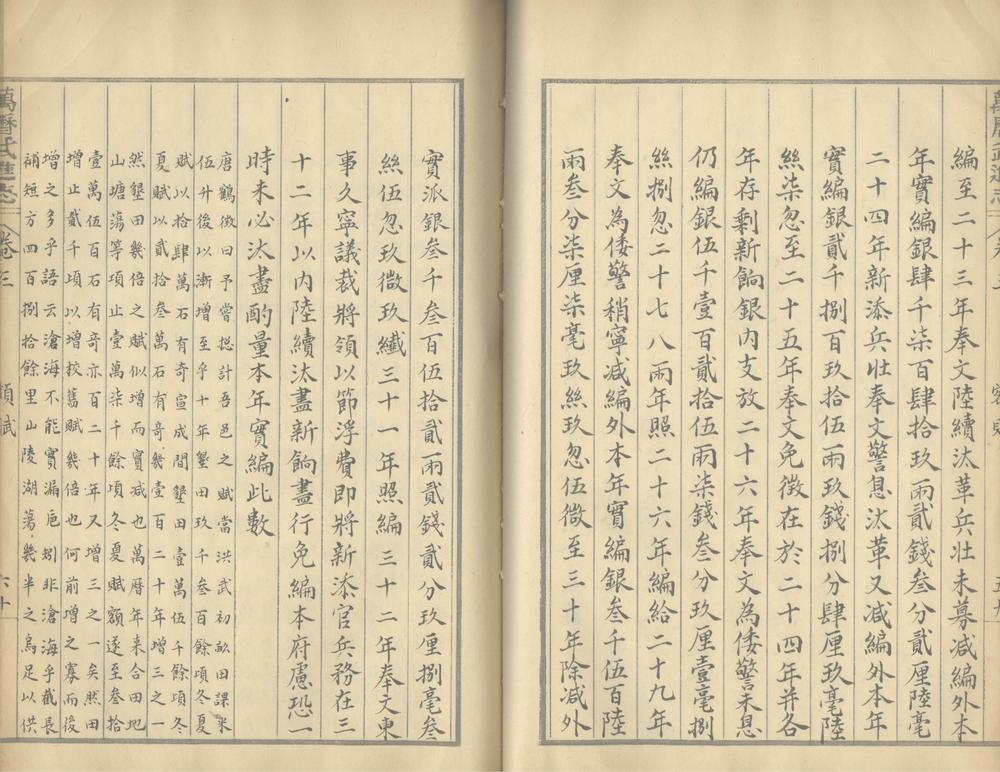 編至二十三年奉文陸續汰革兵壯未募減編外本
年實編銀肆千柒百肆拾玖兩貳錢叁分貳厘陸毫
二十四年新添兵壯奉文警息汰革又減編外本年
實編銀貳千捌百玖拾伍兩玖錢捌分肆厘玖毫陸
絲柒忽至二十五年奉文免徴在於二十四年并各
年存剩新餉銀内支放二十六年奉文為倭警未息
仍編銀伍千壹百貳拾伍兩柒錢叁分玖厘壹毫捌
絲捌忽二十七八兩年照二十六年編給二十九年
奉文為倭警稍寧減編外本年實編銀叁千伍百陸
兩叁分柒厘柒毫玖絲玖忽伍微至三十年除減外
實派銀叁千叁百伍拾貳兩貳錢貳分玖厘捌毫叁
絲伍忽玖微玖纖三十一年照編三十二年奉文東
事久寧議裁將領以節浮費即將新添官兵務在三
十二年以内陸續汰盡新餉盡行免編本府慮恐一
時未必汰盡酌量本年實編此數
唐鶴徴曰予嘗摠計吾邑之賦當洪武初畝田課米
伍升後以漸增至乎十年墾田玖千叁百餘頃冬夏
賦以拾肆萬石有奇宣成間墾田壹萬伍千餘頃冬
夏賦以貳拾叁萬石有奇幾壹百二十年增三之一
然墾田幾倍之賦似增而實减也萬曆年来合田地
山塘蕩等項止壹萬柒千餘頃冬夏賦額遂至叁拾
壹萬伍百石有奇亦百二十年又增三之一矣然田
增止貳千頃以增校舊賦幾倍也何前增之寡而後
增之多乎語云滄海不能實漏巵矧非滄海乎截長
補短方四百捌拾餘里山陵湖蕩幾半之烏足以供
萬曆武進志 卷三 額賦 六十